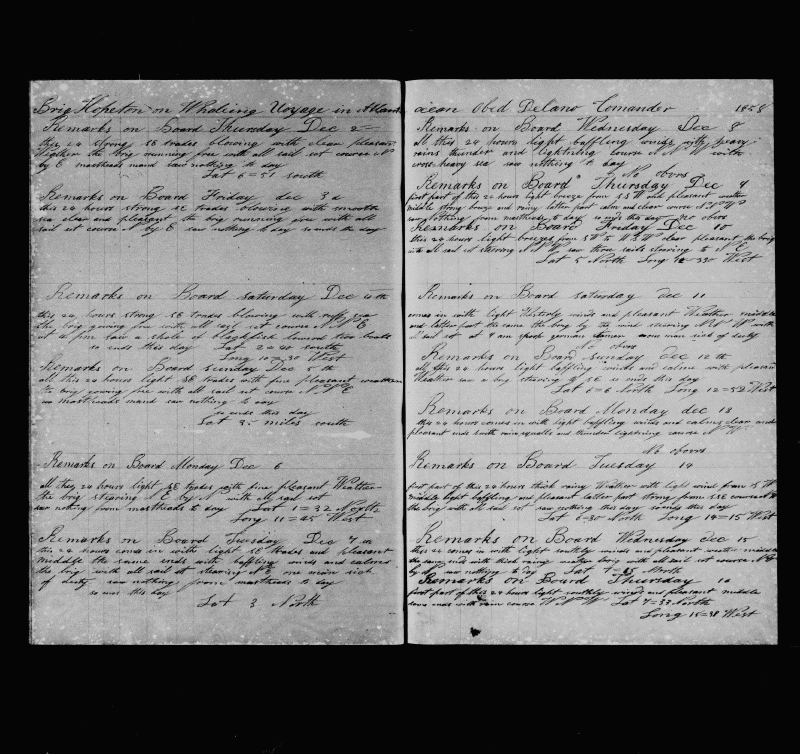 Brig Hopeton on Whaleing Voyage in Atlant
Remarks on Board Thursday Dec 2
this 24 strong SE trades blowing with clean pleasant
Weather the brig running free with all sail set course
by E mastheads mand saw nothing to day
Lat 6=51 south
Remarks on Board Friday dec 3d
this 24 hours strong SE trades blowing with smooth
sea clear and pleasant the brig running free with all
sail set course N by E saw nothing to day so ends the day
Remarks on Board saturday Dec 4th
this 24 hours strong SE trades blowing with ruff sea
the brig going free with all sail set course N N E
at 4 pm saw a shole of blackfish lowerd two boats
so ends this day Lat 2=40 south
Long 10=30 West
Remarks on Board sunday Dec 5th
all this 24 hours light SE trades with fine pleasant weather
brig going free with all sail set course N E
mastheads mand saw nothing to day
so ends this day
Lat 35 miles south
Remarks on Board Monday Dec 6
all this 24 hours light SE trades with fine pleasant Weather
the brig steering N E by N with all sail set
saw nothing from mastheads to day Lat 1=32 North
Long 11=45 West
Remarks on Board Tuesday Dec 7
this 24 hours comes in with light SE trades and pleasant
middle the same ends with baffling winds and calms
the brig with all sail set stearing N E one main sick
of duty saw nothing from mastheads to day
so ends this day
Lat 3 North
ocean Obed Delano Comander 1858
Remarks on Board Wednesday Dec 8
all this 24 hours light baffling winds with heavy
rains thunder and lightning course N N W with
cross heavy sea saw nothing to day
No obers
Remarks on Board Thursday Dec 9
first part of this 24 hours light breeze from S S W and pleasant weather
middle strong breeze and rainy latter part calm and clear course N N W
saw nothing from mastheads to day so ends this day no obers
Remarks on Board Friday Dec 10
this 24 hours light breezes from S W to W S W clear pleasant the brig
with all sail set steering N W saw three sails steering to N E
Lat 5 North Long 12=330 West
Remarks on Board saturday dec 11
comes in with light Westerly winds and pleasant Weather middle
and latter part the same the brig by the wind steering N N W with
all sail set at 9 am spoke german one man sick of duty
Remarks on Board sunday Dec 12th
all this 24 hours light baffling winds and calms with pleasant
Weather saw a brig steering to SE so ends this day
Lat 6=6 North Long 12=52 West
Remarks on Board Monday dec 13
this 24 hours comes in with light baffling winds and calms clear and
pleasant ends with rain squalls and thunder lightning course N W
No obers
Remarks on Board Tuesday 14
first part of this 24 hours thick rainy Weather with light wind from S W
middle light baffling and pleasant latter part strong from S S E course N
the brig with all sail set saw nothing this day so ends this day
Lat 6=30 North Long 14=15 West
Remarks on Board Wednesday dec 15
this 24 comes in with light southly winds and pleasant weather middle
the same ends with thick rainy weather brig with all sail set course
by saw nothing to day Lat 7=25 North
Remarks on Board Thursday 16
first part of this 24 hours light southly winds and pleasant middle
hours ends with rain course W N W Lat 7=33 North
Long 15=38 West